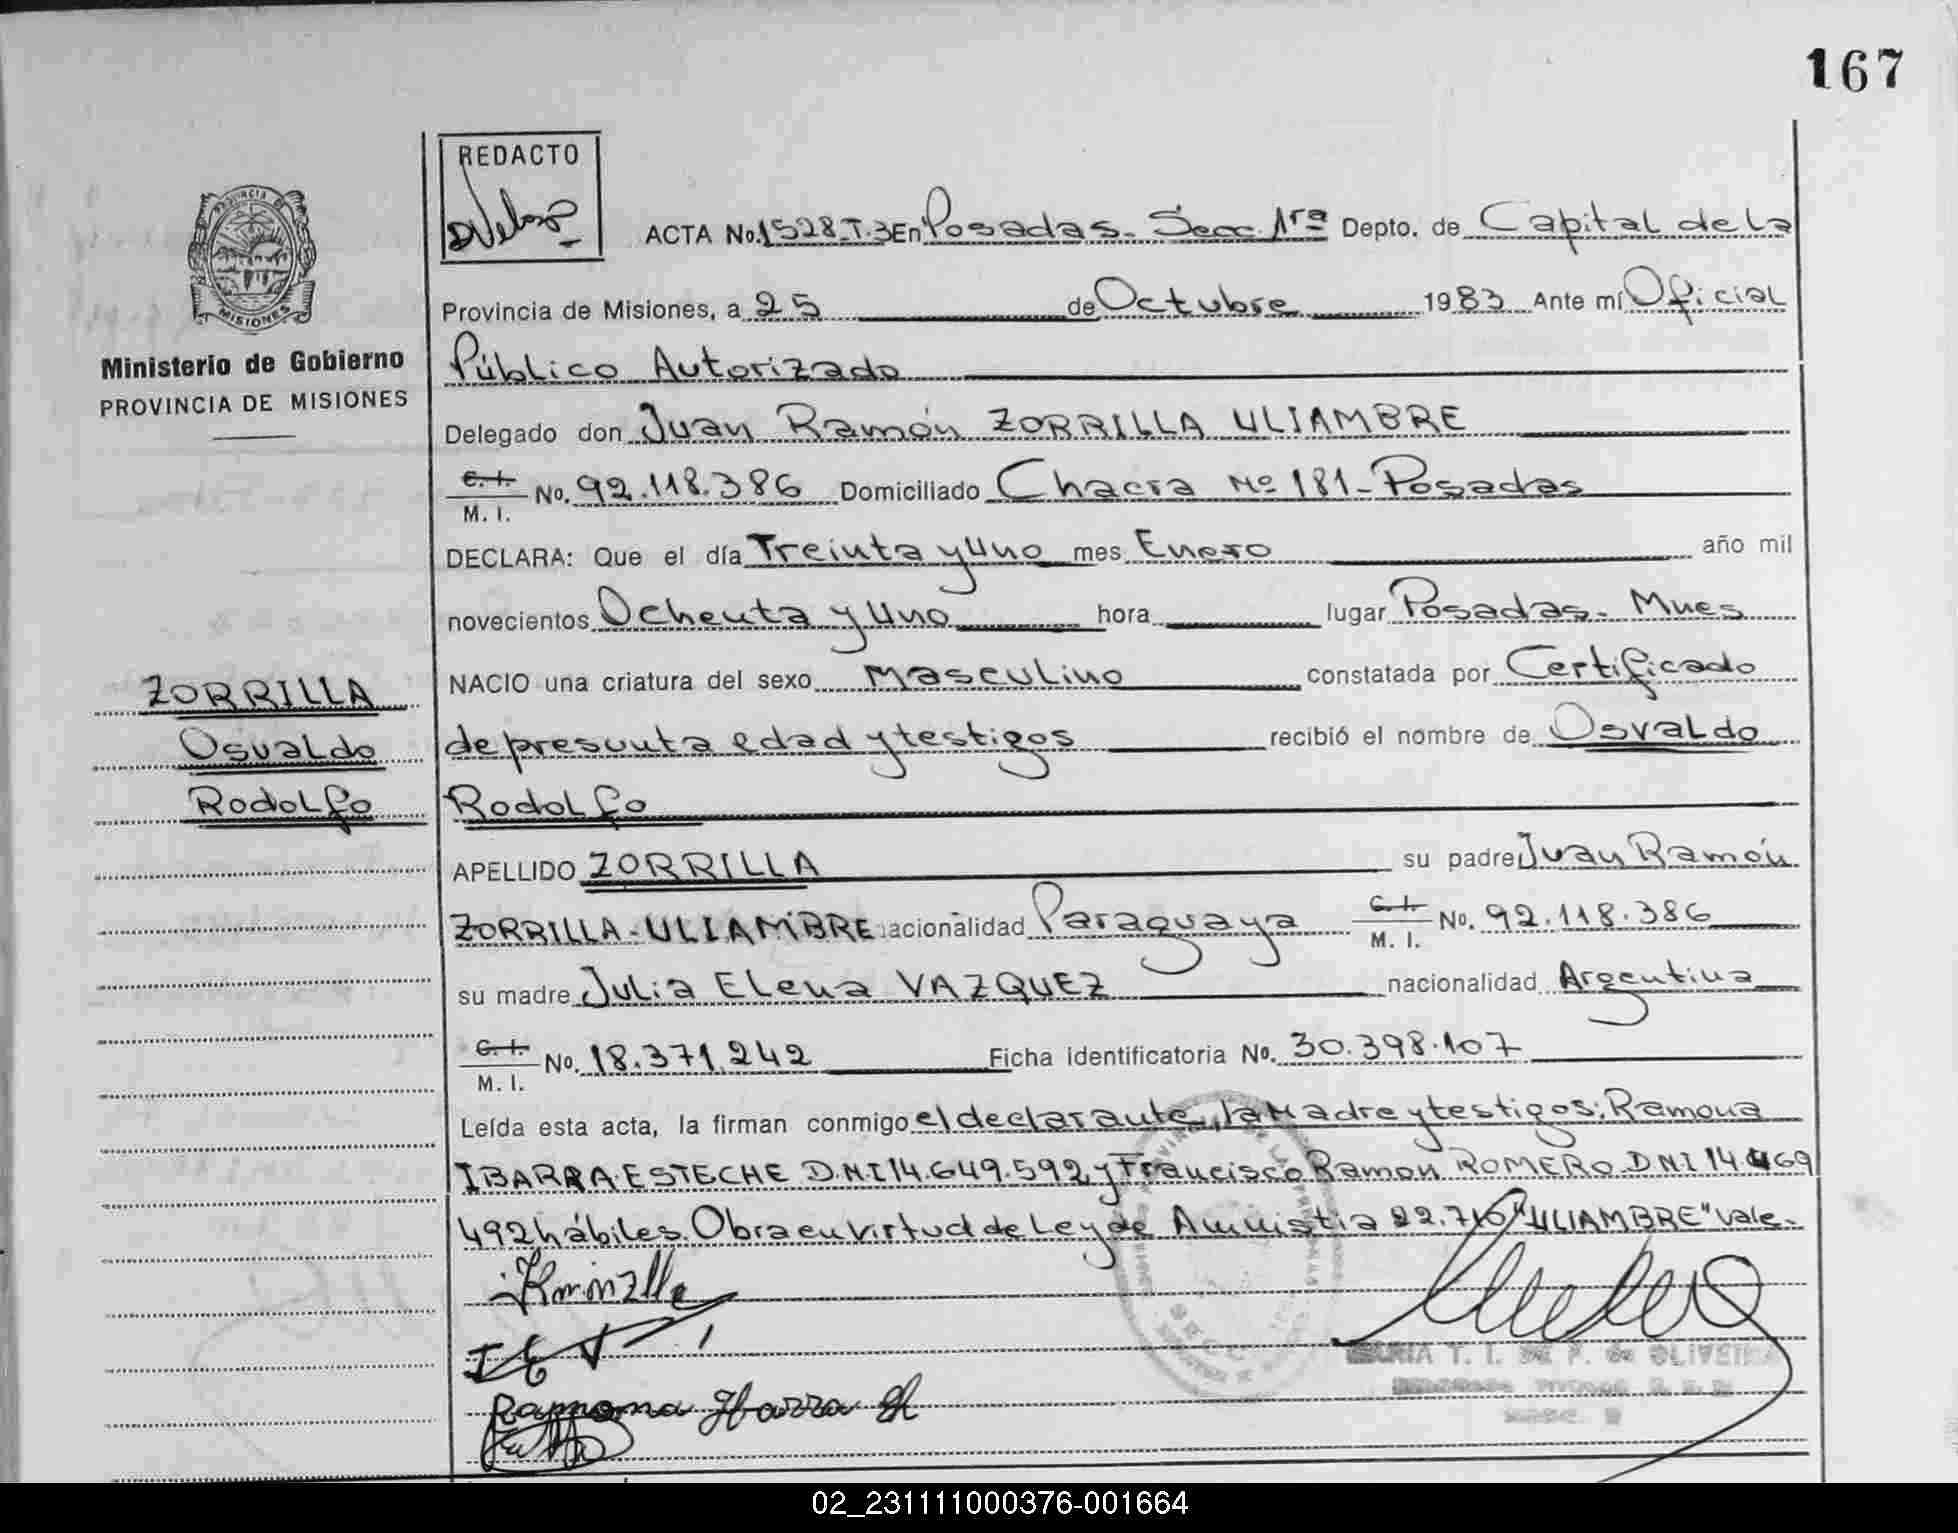 167
REDACTO
PROVINCIA DE
MISIONES
Ministerio de Gobierno
PROVINCIA DE MISIONES
ACTA No. 1528-T.3 En Posadas. Secc. 1ra Depto. de Capital de La
Provincia de Misiones, a 25 de Octubre 1983 Ante mí Oficial
Público Autorizado
Delegado don Juan Ramón ZORRILLA ULIAMBRE
C. I. M. I. No. 92.118.386 Domiciliado Chacra Nº 181-Posadas
DECLARA: Que el día Treinta y Uno mes Enero año mil
novecientos Ochenta y Uno hora lugar Posadas. Mnes
NACIO una criatura del sexo Masculino constatada por Certificado
de presunta edad y testigos recibió el nombre de Osvaldo
Rodolfo
APELLIDO ZORRILLA su padre Juan Ramón
ZORRILLA-ULIAMBRE acionalidad Paraguaya C. I. M. I. No. 92.118.386
su madre Julia Elena VAZQUEZ nacionalidad Argentina
C. I. M. I. No. 18.371.242 Ficha identificatoria No. 30.398.107
Leída esta acta, la firman conmigo el declarante, la Madre y testigos: Ramona
IBARRA ESTECHE D.N.I 14.649.592 y Francisco Ramon ROMERO D N I 14 469
492 hábiles. Obra en virtud de Ley de Amnistia 22.710 "ULIAMBRE" Vale-
ZORRILLA
Osvaldo
Rodolfo
J E V
Ramona Ibarra
MARIA T. I. DE F. de OLIVEIRA
02_231111000376-001664